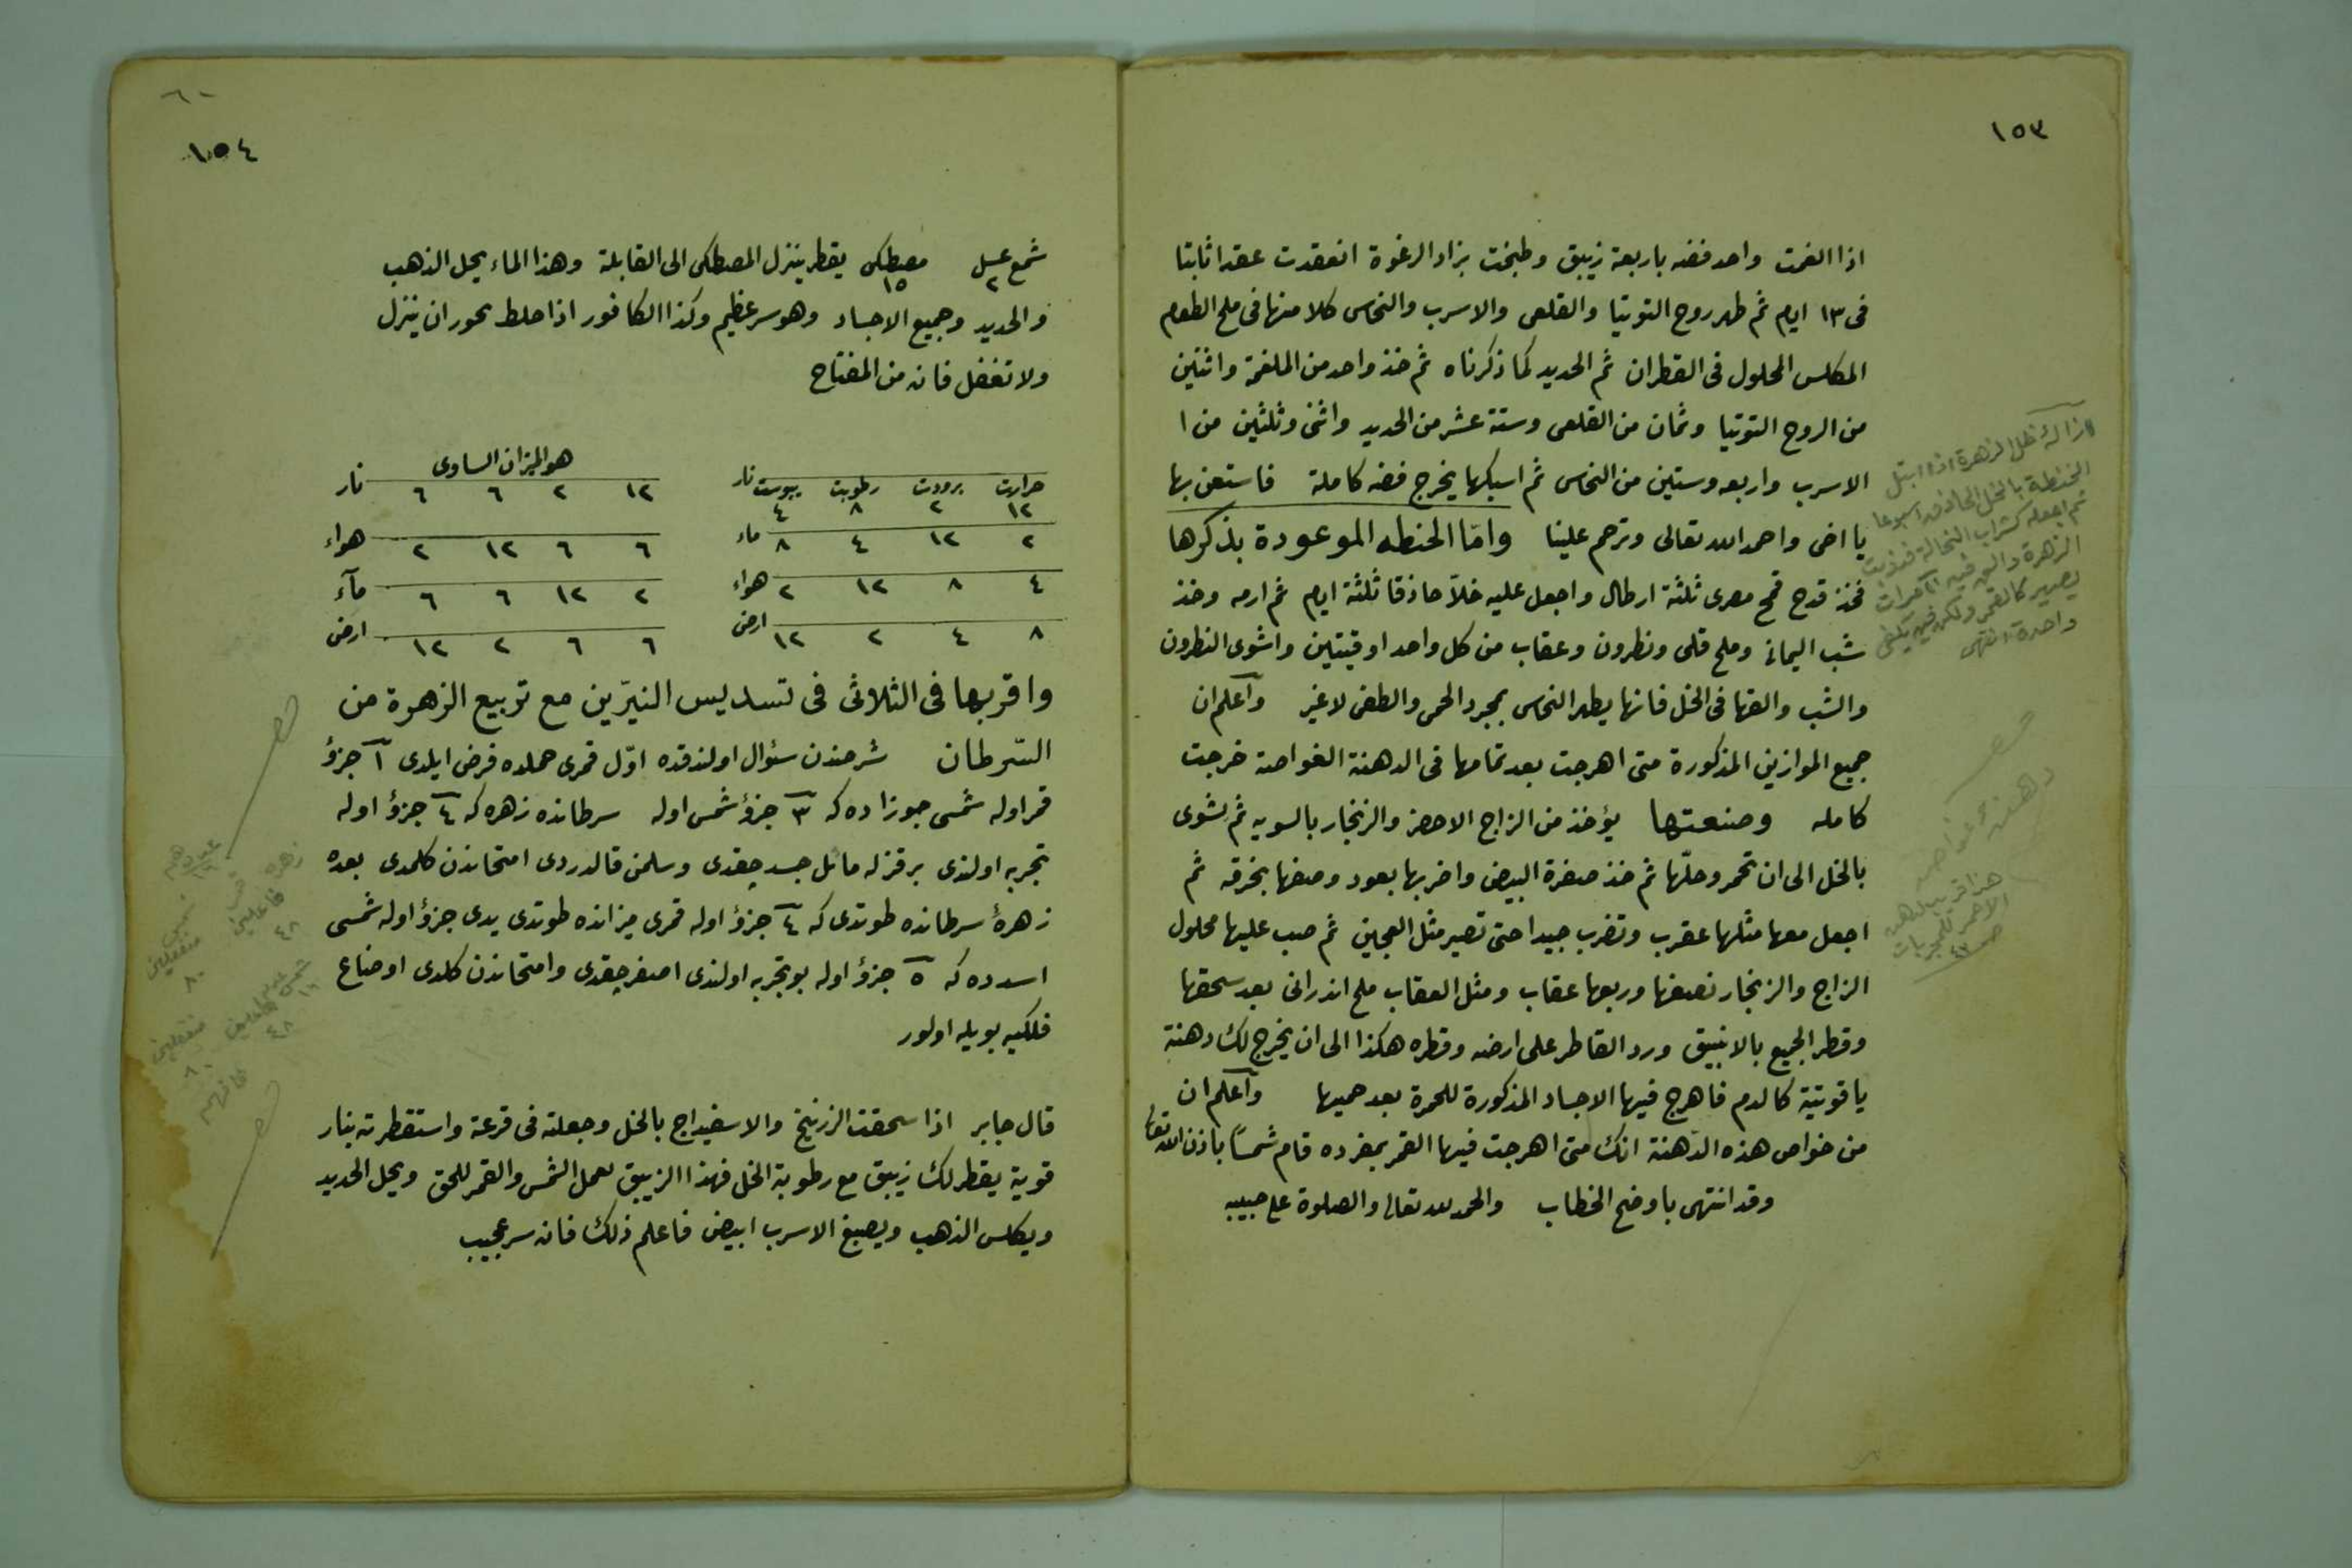 ١٥٣
اذا الغمت واحد فضه باربعة زيبق وطبخت بزاد الرغوة انعقدت عقدا ثابتا
فى ١٣ ايام ثم طهر روح التوتيا والقلعى والاسرب والنحاس كلا منها فى ملح الطعام
المكلس المحلول فى القطران ثم الحديد كما ذكرناه ثم خذ واحد من الملغمة واثنين
من الروح التوتيا وثمان من القلعى وستة عشر من الحديد واثنى وثلثين من ا
الاسرب واربعه وستين من النحاس ثم اسبكها يخرج فضه كاملة فاستعن بها
يا اخى واحمد الله تعالى وترحم علينا وامّا الحنطه الموعودة بذكرها
فخذ قدح قمح مصرى ثلثة ارطال واجعل عليه خلاّ حاذقا ثلثة ايام ثم ارمه وخذ
شب اليمانى وملح قلى ونطرون وعقاب من كل واحد اوقيتين واشوى النطرون
والشب والقها فى الخل فانها يطهر النحاس بمجرد الحمى والطفى لاغير وآعلم ان
جميع الموازين المذكورة متى اهرجت بعد تمامها فى الدهنة الغواصة خرجت
كامله وصنعتها يؤخذ من الزاج الاحضر والزنجار بالسويه ثم تشوى
بالخل الى ان تحمر وحلّها ثم خذ صفرة البيض واضربها بعود وصفها بخرقه ثم
اجعل معها مثلها عقرب وتضرب جيدا حتى تصير مثل العجين ثم صب عليها محلول
الزاج والزنجار نصفها وربعها عقاب ومثل العقاب ملح اندرانى بعد سحقها
وقطر الجميع بالانبيق ورد القاطر على ارضه وقطره هكذا الى ان يخرج لك دهنة
ياقوتية كالدم فاهرج فيها الاجساد المذكورة للحمرة بعد حميها وآعلم ان
من خواص هذه الدّهنة انك متى اهرجت فيها القمر بمفرده قام شمساً باذن الله تعالى
وقد انتهى باوضح الخطاب والحمد لله تعالى والصلوة على حبيبه
ازالة ظل الزهرة اذا ابتل
الحنطة بالخل الحاذق اسبوعا
ثم اجعله كشراب النخالة فذوبت
الزهرة والق فيه ٣ مرات
يصير كالقمر ولكن فيه يكفى
واحدة انتهى
دهنة غواصه
هذا قريب لدهن
الاحمر للجربات
ص ٤٢
٦٠
١٥٤
شمع عسل ٢ مصطكى ١٥ يقطر ينزل المصطكى الى القابلة وهذا الماء يحل الذهب
والحديد وجميع الاجساد وهو سر عظيم وكذا الكافور اذا حلط بحور ان ينزل
ولا تغفل فانه من المفتاح
هو الميزان الساوى
حرارت برودت رطوبت يبوست نار
١٢ ٢ ٨ ٤
٢ ١٢ ٤ ٨ ماء
٤ ٨ ١٢ ٢ هواء
٨ ٤ ٢ ١٢ ارض
١٢ ٢ ٦ ٦ نار
٦ ٦ ١٢ ٢ هواء
٢ ١٢ ٦ ٦ مآء
٦ ٦ ٢ ١٢ ارض
واقربها فى الثلاثى فى تسديس النيّرين مع تربيع الزهرة من
السّرطان شرحندن سئوال اولندقده اوّل قمرى حملده فرض ايلدى ١ جزؤ
قمر اوله شمسى جوزاده كه ٣ جزؤ شمس اوله سرطانده زهره كه ٤ جزؤ اوله
تجربه اولندى بر قزله مائل جسد چقدى وسلمن قالدردى امتحاندن كلمدى بعده
زهرهٔ سرطانده طوتدى كه ٤ جزؤ اوله قمرى ميزانده طوتدى يدى جزؤ اوله شمسى
اسدده كه ٥ جزؤ اوله بو تجربه اولندى اصفر چقدى وامتحاندن كلدى اوضاع
فلكيه بويله اولور
قال جابر اذا سحقت الزرنيخ والاسفيداج بالخل وجعلته فى قرعة واستقطرته بنار
قوية يقطر لك زيبق مع رطوبة الخل فهذا الزيبق لعمل الشمس والقمر للحق ويحل الحديد
ويكلس الذهب ويصبغ الاسرب ابيض فاعلم ذلك فانه سر عجيب
زهره
٤٨
٨٠
شمس
١٦
٤٨
٨٠